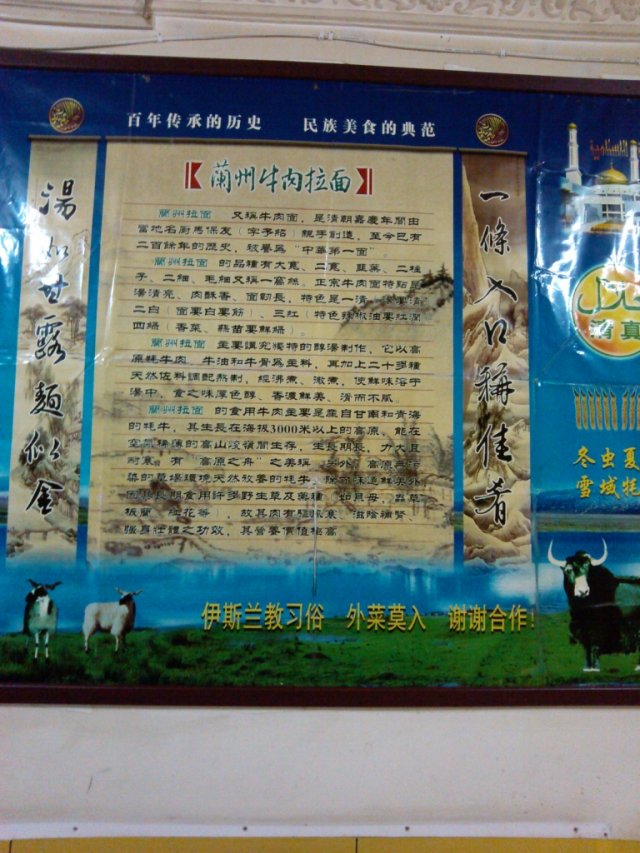 百年传承的历史 民族美食的典范
蘭州牛肉拉面
湯如甘露麵似金
一條入口稱佳肴
蘭州拉面 又稱牛肉面，是清朝嘉慶年間由
當地名厨馬保友（字子昭）親手創造，至今已有
二百餘年的歷史，被譽爲“中華第一面”
蘭州拉面 的品種有大寬、二寬、韭葉、二柱
子、二細、毛細又稱一窩絲，正宗牛肉面特點是
湯清亮、肉酥香、面韌長，特色是一清
二白（面要白要筋）、三紅（特色辣椒油要紅潤
四緑（香菜、蒜苗要鮮緑）
蘭州拉面 主要講究獨特的醇湯制作，它以高
原牦牛肉、牛油和牛骨爲主料，再加上二十多種
天然佐料調配熬制，經沸煮、澈煮，使鮮味溶于
湯中，食之味厚色醇、香濃鮮美、清而不膩
蘭州拉面 的食用牛肉主要是産自甘南和青海
的牦牛，其生長在海拔3000米以上的高原，能在
空氣稀薄的高山峻嶺間生存，生長期長，力大且
耐寒，有“高原之舟”之美稱
染的草場環境天然放養的牦牛，除肉味道鮮美外
因其長期食用許多野生草及藥種（如貝母、蟲草
板蘭、紅花等），故其肉有驅寒、滋陰補腎
强身壯體之功效，其營養價值極高
清真
冬虫夏
雪域牦
伊斯兰教习俗 外菜莫入 谢谢合作！